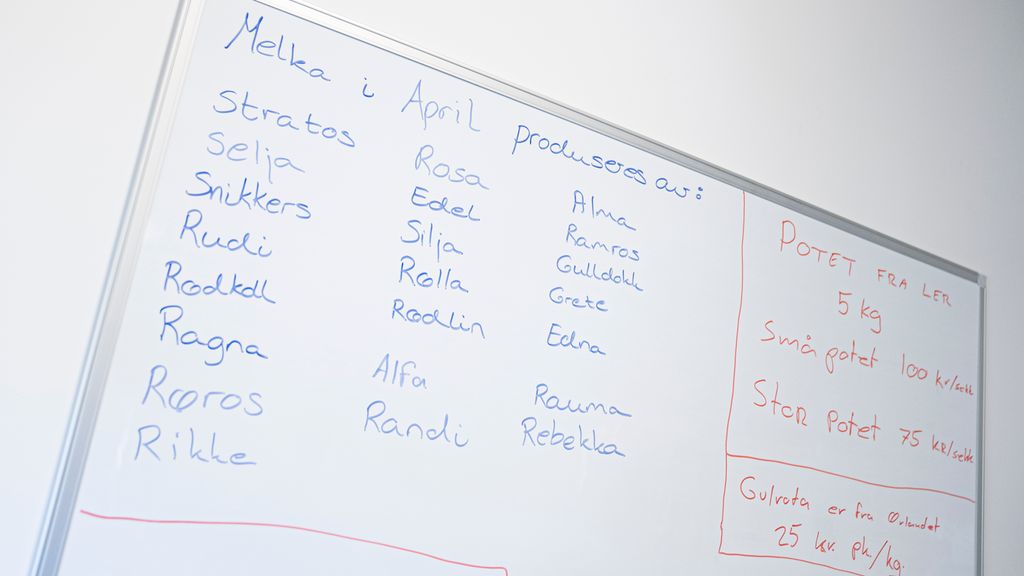 Melka i April produseres av:
Stratos
Selja
Snikkers
Rudi
Rødkål
Ragna
Røros
Rikke
Rosa
Edel
Silja
Rølla
Rødlin
Alfa
Randi
Alma
Ramros
Gulldokk
Grete
Edna
Rauma
Rebekka
POTET FRA LER
5 kg
Små potet 100 kr/sekk
Stor Potet 75 kr/sekk
Gulrota er fra Ørlandet
25 kr. pk./kg.